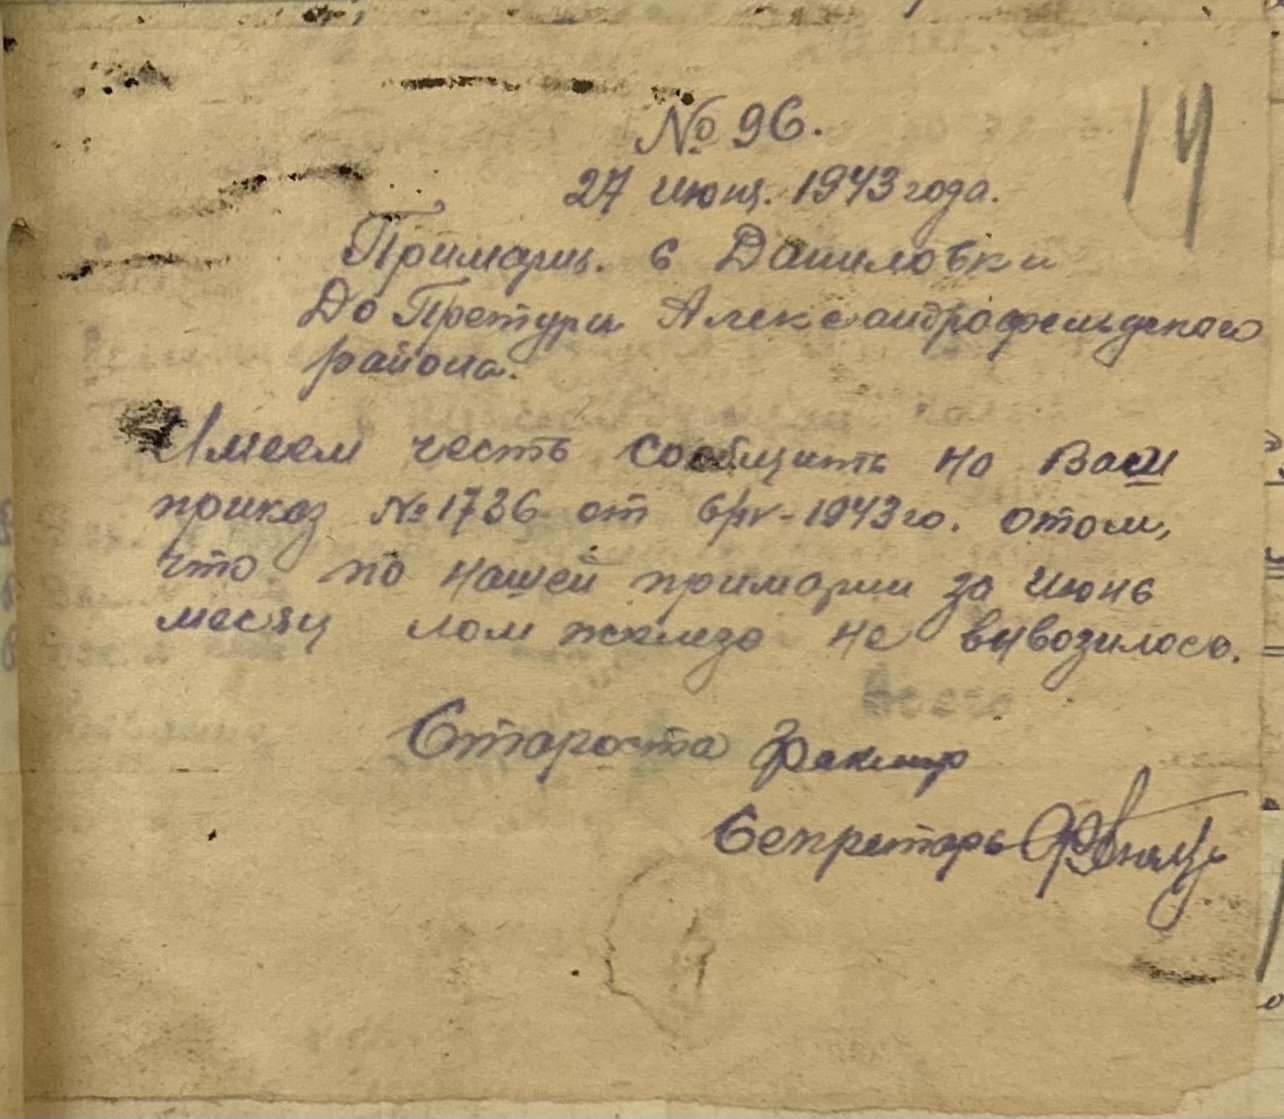 14
№ 96.
27 июня. 1943 года.
Примария. с Даниловки
До Претури Александрофельдского
района.
Имеем честь сообщить на Ваш
приказ № 1736 от 6/IV-1943 го. отом,
что по нашей примарии за июнь
месяц лом железа не вывозилось.
Староста
Секретарь